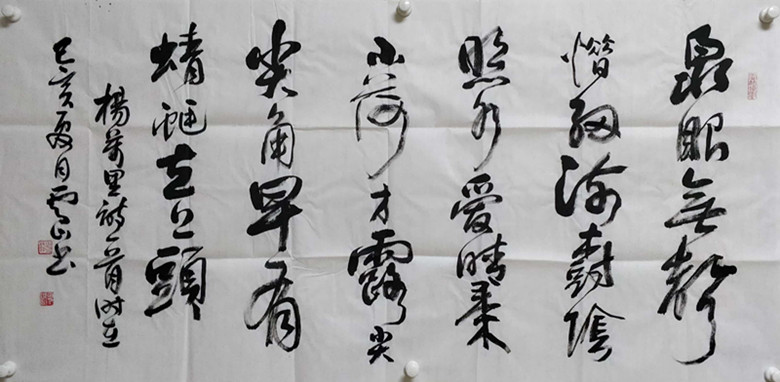 泉眼無聲
惜細流樹陰
照水愛晴柔
小荷才露尖
尖角早有
蜻蜓立上頭
楊萬里詩一首時在
己亥夏月雲山書